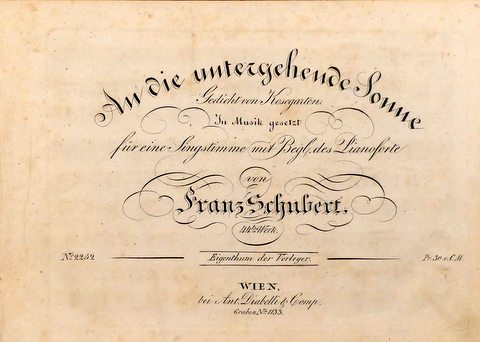 An die untergehende Sonne
Gedicht von Kosegarten.
In Musik gesetzt
für eine Singstimme mit Begl. des Pianoforte
von
Franz Schubert.
44tes Werk.
No. 2252. Eigenthum der Verleger. Pr. 30 x. C.M.
WIEN,
bei Ant. Diabelli & Comp.
Graben No. 1133.